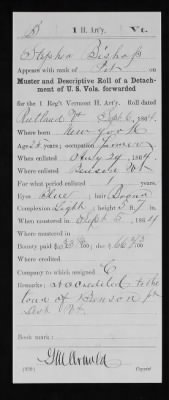 B | 1 H. Art'y. | Vt.
Stephen Bishop
Appears with rank of Pvt on
Muster and Descriptive Roll of a Detach-
ment of U. S. Vols. forwarded
for the 1 Reg't Vermont H. Art'y. Roll dated
Rutland Vt Sept 6, 1864.
Where born New York
Age 24 years; occupation Farmer
When enlisted July 29, 1864.
Where enlisted Benson Vt
For what period enlisted 1 years.
Eyes Blue; hair Brown
Complexion Light; height 5 ft. 7 in.
When mustered in Sept 5, 1864
Where mustered in
Bounty paid $33 100; due $66 100
Where credited
Company to which assigned C
Remarks: accredited to the
town of Benson
Vt.
Book mark:
(339) Copyist